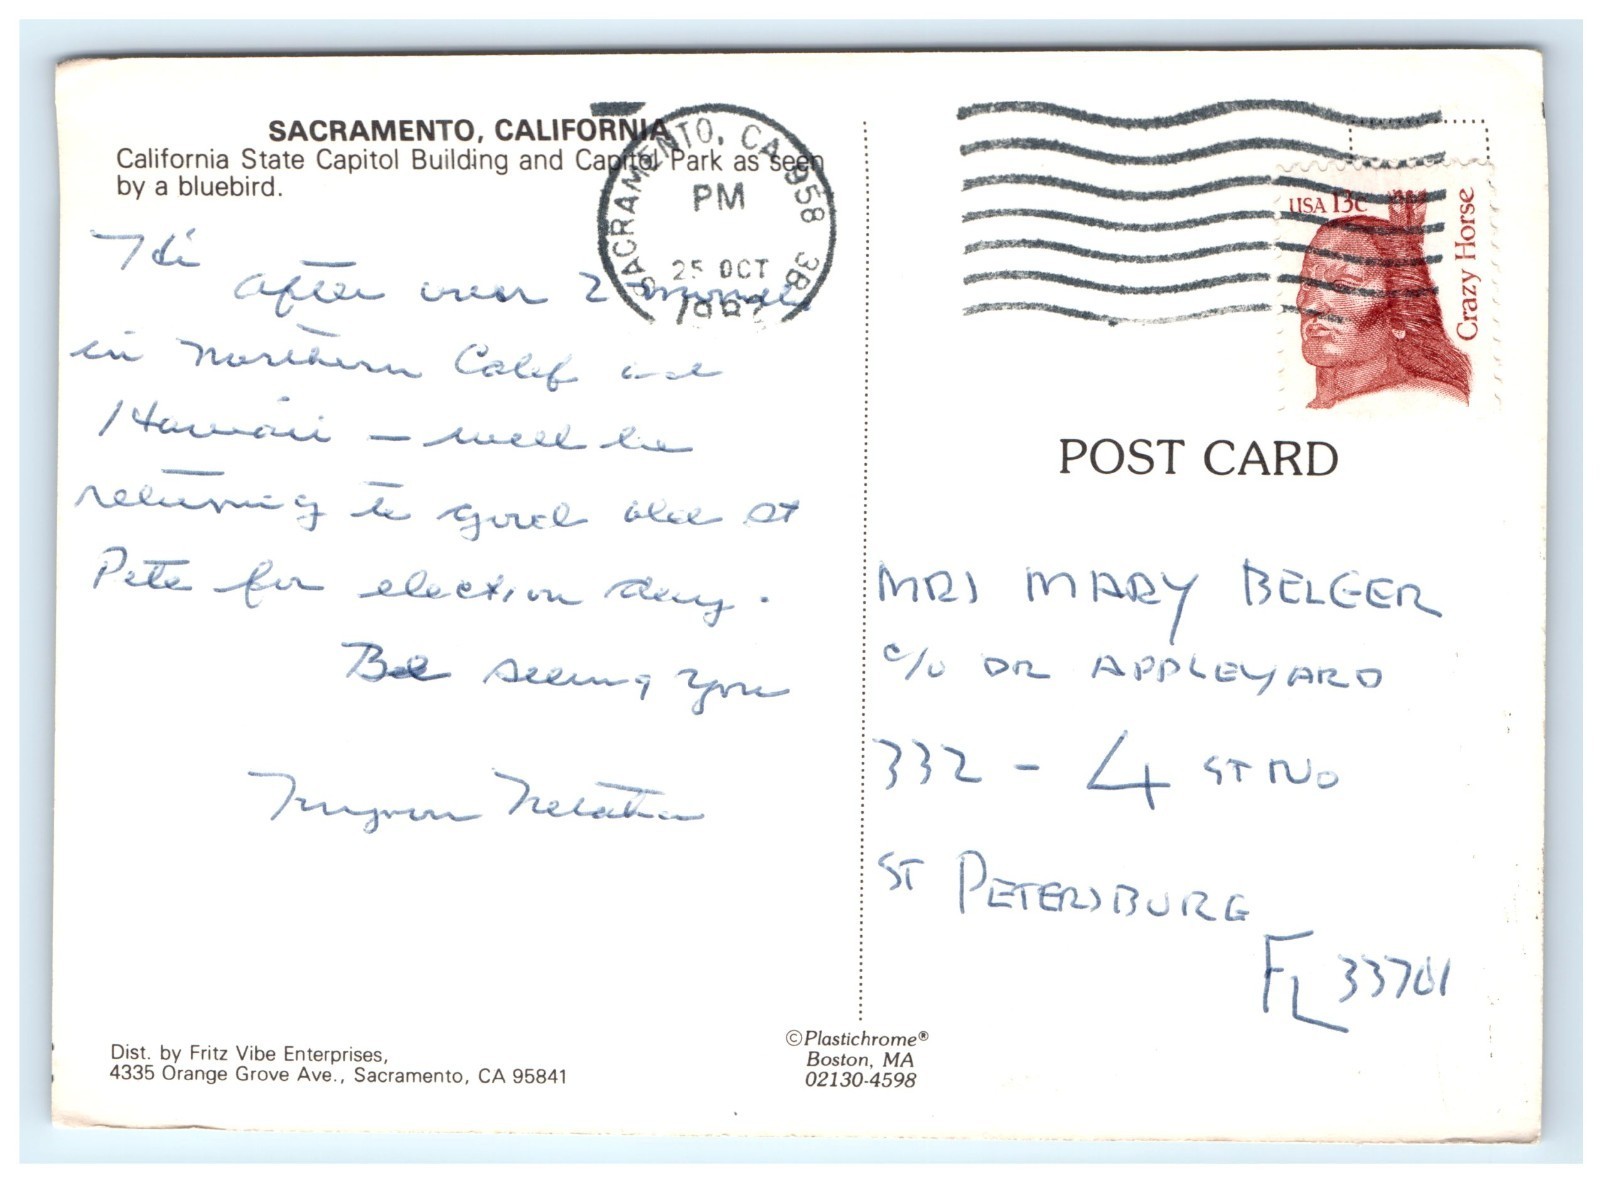 SACRAMENTO, CALIFORNIA
California State Capitol Building and Capitol Park as seen
by a bluebird.
SACRAMENTO, CA 958 3B
PM
25 OCT
USA 13c
Crazy Horse
POST CARD
Hi
after over 2 months
in Northern Calif and
Hawaii – will be
returning to good old St
Pete for election day.
Be seeing you
Myron
MRS MARY BELGER
c/o DR APPLEYARD
332 - 4 ST NO
ST PETERSBURG
FL 33701
Dist. by Fritz Vibe Enterprises,
4335 Orange Grove Ave., Sacramento, CA 95841
©Plastichrome®
Boston, MA
02130-4598